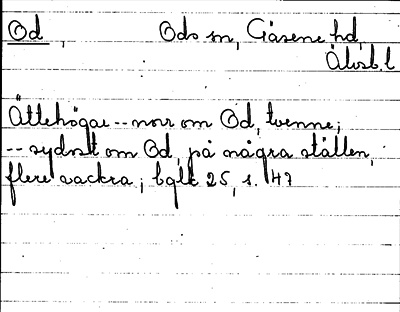 Od, Ods sn, Gäsene hd,
Älvsb. l
Ättehögar -- norr om Od, tvenne;
-- sydost om Od, på några ställen,
flere vackra; bglt 25, s. 47